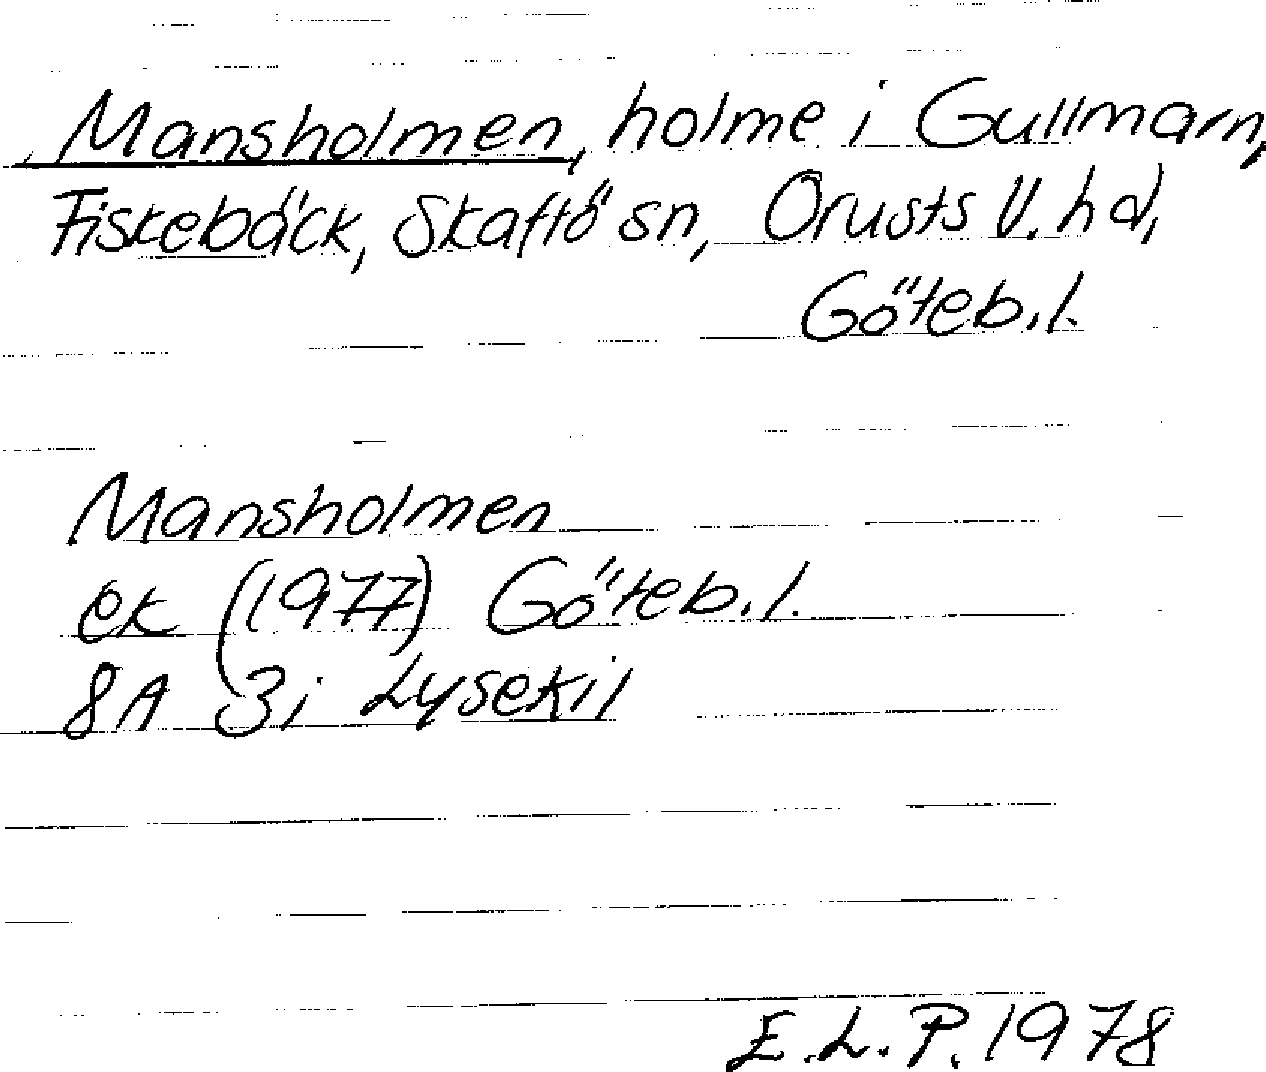 Mansholmen, holme i Gullmarn,
Fiskebäck, Skaftö sn, Orusts V. hd,
Göteb. l.
Mansholmen
ek (1977) Göteb. l.
8A 3i Lysekil
E.L.P. 1978